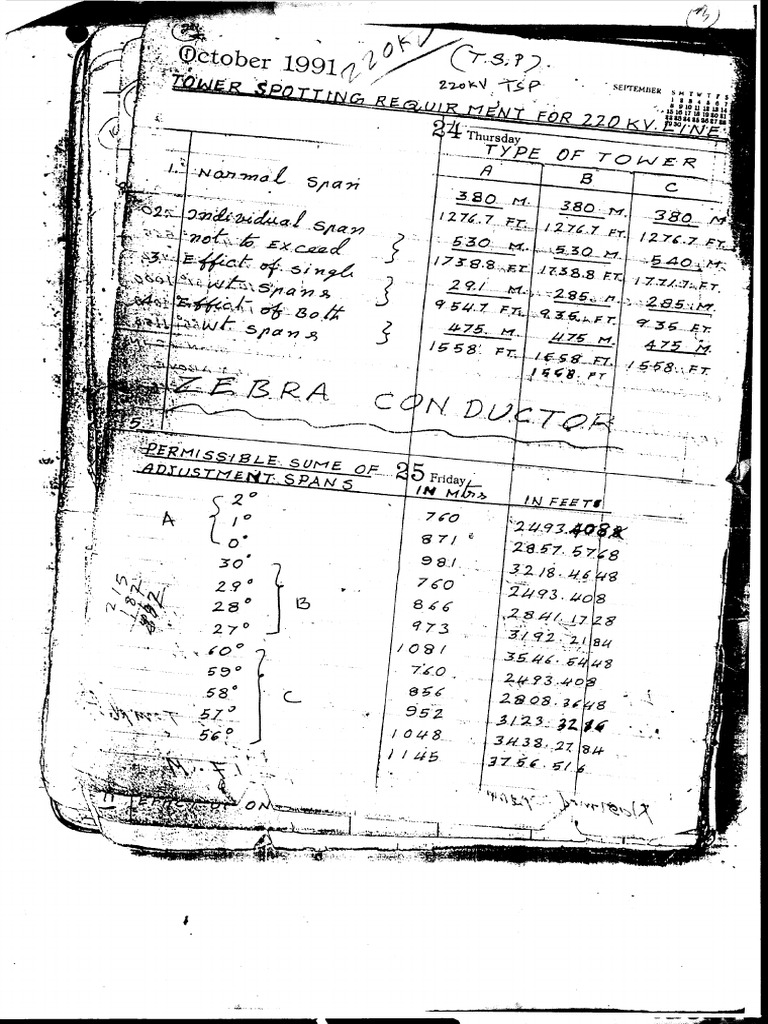 October 1991
220KV
(T.S.P).
220KV TSP
SEPTEMBER
S M T W T F S
TOWER SPOTTING REQUIRMENT FOR 220KV.LINE
24 Thursday
TYPE OF TOWER
A B C
1. Normal Span 380 M. 380 M. 380 M
1276.7 FT. 1276.7 FT. 1276.7 FT.
02. Individual Span not to Exceed 530 M. 530 M. 540 M.
1738.8 FT 1738.8 FT. 1771.7 FT.
3. Effict of Single Wt Spans 291 M 285 M 285 M.
954.7 FT. 935 FT. 935 FT.
4. Effict of Both Wt Spans 475 M. 475 M. 475 M.
1558 FT. 1558 FT. 1558 FT.
1558. FT
ZEBRA CONDUCTOR
5
PERMISSIBLE SUME OF
ADJUSTMENT SPANS
25 Friday
IN Mtrs IN FEETS
A
2° 760 2493.408
1° 871 2857.5768
0° 981 3218.4648
B
30° 760 2493.408
29° 866 2841.1728
28° 973 3192.2184
27° 1081 3546.5448
C
60° 760 2493.408
59° 856 2808.3648
58° 952 3123.3216
57° 1048 3438.2784
56° 1145 3756.516
215
187